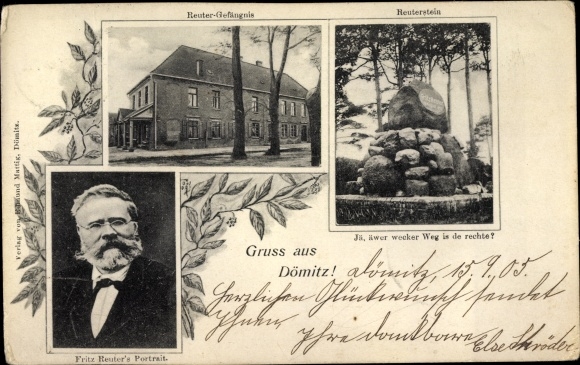 Reuter-Gefängnis
Reuterstein
Verlag von Edmund Mattig, Dömitz.
Jä, äwer wecker Weg is de rechte?
Gruss aus
Dömitz!
Dömitz, 15.9.05
Herzlichen Glückwunsch sendet
Ihnen Ihre dankbare Else Schröder
Fritz Reuter's Portrait.